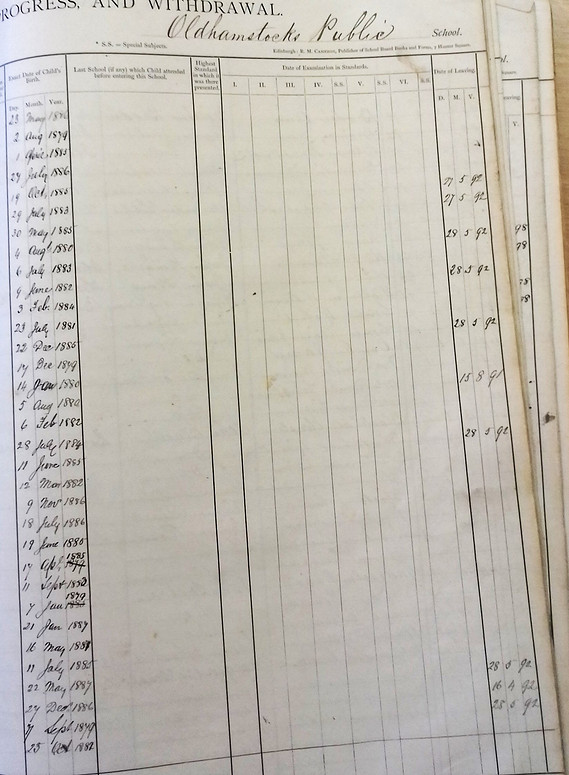 PROGRESS, AND WITHDRAWAL.
Oldhamstocks Public School.
* S.S. — Special Subjects.
Exact Date of Child's Birth.
Last School (if any) which Child attended before entering this School.
Highest Standard in which it was there presented.
Date of Examination in Standards.
Date of Leaving.
Day Month. Year.
I. II. III. IV. S.S. V. S.S. VI. S.S.
D. M. Y.
23 May 1886
2 Aug 1879
1 1885
27 July 1886 27 5 92
19 Oct. 1885 27 5 92
29 July 1883
30 May 1885 28 5 92
4 Augt 1880
6 July 1883 28 5 92
9 June 1882
3 Feb. 1884
23 July 1881 28 5 92
22 Dec 1885
17 Dec 1879
14 Jan 1880 15 8 91
5 Aug
6 Feb 1882
28 July 1884 28 5 92
11 June 1885
12 Mar 1882
9 Nov 1886
18 July 1886
19 June 1885
1885
17 Apl. 1879
11 Sept
1879
7 Jan
21 Jan 1887
16 May
11 July 1885 28 5 92
22 May 1887 16 4 92
27 Decr 1886 28 5 92
7 Sept 1879
25 Oct 1882